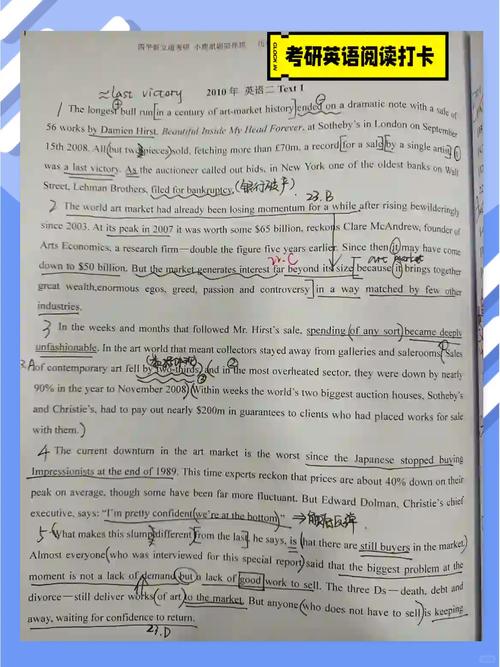 考研英语阅读打卡
CLOCK IN
≈last victory
2010 年 英语二 Text 1
1 The longest bull run in a century of art-market history ended on a dramatic note with a sale of
56 works by Damien Hirst, Beautiful Inside My Head Forever, at Sotheby's in London on September
15th 2008. All but two pieces sold, fetching more than £70m, a record for a sale by a single artist. It
was a last victory. As the auctioneer called out bids, in New York one of the oldest banks on Wall
Street, Lehman Brothers, filed for bankruptcy. (银行破产)
23.B
2 The world art market had already been losing momentum for a while after rising bewilderingly
since 2003. At its peak in 2007 it was worth some $65 billion, reckons Clare McAndrew, founder of
Arts Economics, a research firm—double the figure five years earlier. Since then it may have come
art market
down to $50 billion. But the market generates interest far beyond its size because it brings together
great wealth, enormous egos, greed, passion and controversy in a way matched by few other
industries.
3 In the weeks and months that followed Mr. Hirst's sale, spending of any sort became deeply
unfashionable. In the art world that meant collectors stayed away from galleries and salerooms. Sales
of contemporary art fell by two-thirds, and in the most overheated sector, they were down by nearly
90% in the year to November 2008. Within weeks the world's two biggest auction houses, Sotheby's
and Christie's, had to pay out nearly $200m in guarantees to clients who had placed works for sale
with them.
4 The current downturn in the art market is the worst since the Japanese stopped buying
Impressionists at the end of 1989. This time experts reckon that prices are about 40% down on their
peak on average, though some have been far more fluctuant. But Edward Dolman, Christie's chief
executive, says: "I'm pretty confident we're at the bottom."
5 What makes this slump different from the last, he says, is that there are still buyers in the market.
Almost everyone who was interviewed for this special report said that the biggest problem at the
moment is not a lack of demand but a lack of good work to sell. The three Ds—death, debt and
divorce—still deliver works of art to the market. But anyone who does not have to sell is keeping
away, waiting for confidence to return.
23.D